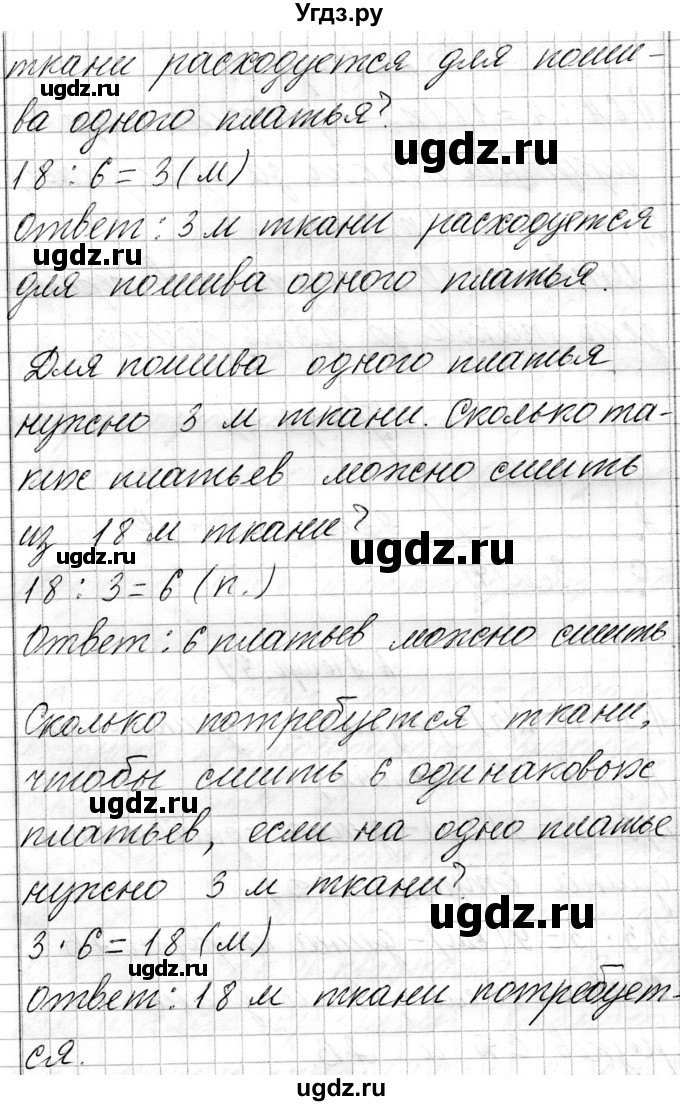 Угдз.ру
ткани расходуется для поши-
ugdz.ru
ва одного платья?
ugdz.ru
18 : 6 = 3 (м)
Ответ: 3 м ткани расходуется
ugdz.ru
для пошива одного платья.
Для пошива одного платья
нужно 3 м ткани. Сколько та-
ких платьев можно сшить
из 18 м ткани?
ugdz.ru
ugdz.ru
18 : 3 = 6 (п.)
Ответ: 6 платьев можно сшить
Сколько потребуется ткани,
чтобы сшить 6 одинаковых
ugdz.ru
платьев, если на одно платье
нужно 3 м ткани?
ugdz.ru
3 · 6 = 18 (м)
ugdz.ru
Ответ: 18 м ткани потребует-
ся.
ugdz.ru